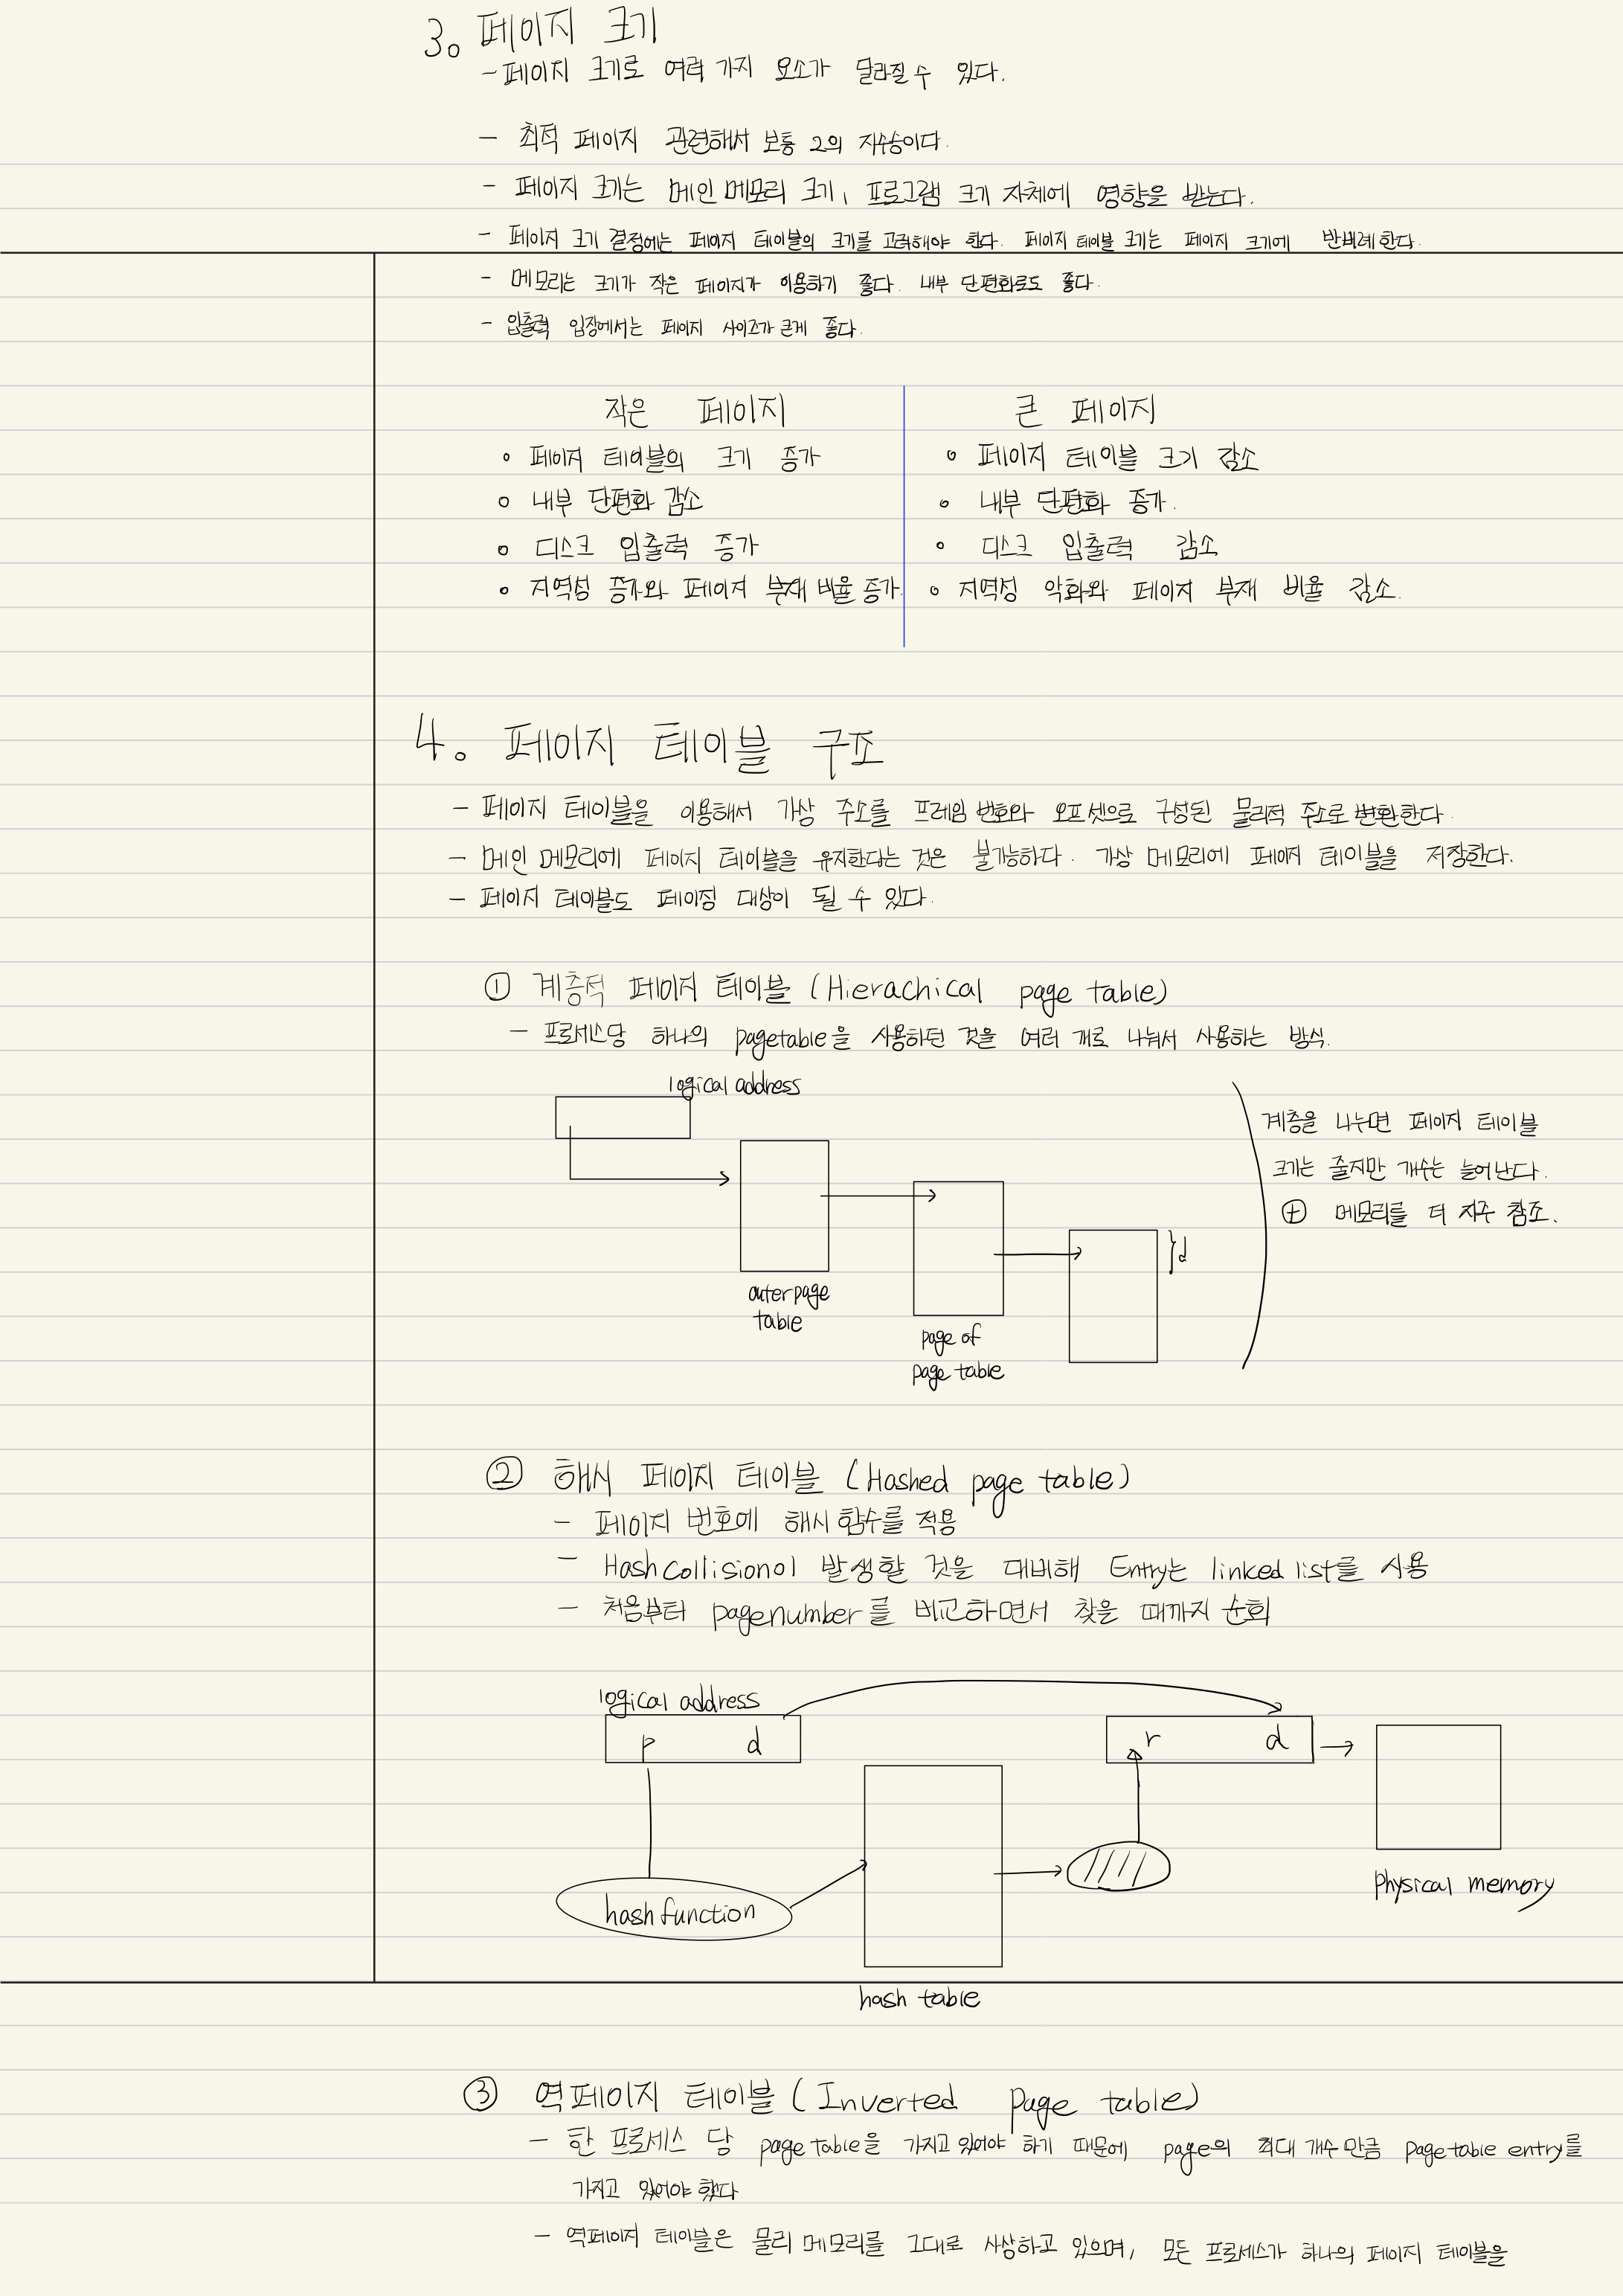 3. 페이지 크기
- 페이지 크기로 여러 가지 요소가 달라질 수 있다.
- 최적 페이지 관련해서 보통 2의 지수승이다.
- 페이지 크기는 메인 메모리 크기, 프로그램 크기 자체에 영향을 받는다.
- 페이지 크기 결정에는 페이지 테이블의 크기를 고려해야 한다. 페이지 테이블 크기는 페이지 크기에 반비례한다.
- 메모리는 크기가 작은 페이지가 이용하기 좋다. 내부 단편화로도 좋다.
- 입출력 입장에서는 페이지 사이즈가 큰게 좋다.
작은 페이지
◦ 페이지 테이블의 크기 증가
◦ 내부 단편화 감소
◦ 디스크 입출력 증가
◦ 지역성 증가와 페이지 부재 비율 증가
큰 페이지
◦ 페이지 테이블 크기 감소
◦ 내부 단편화 증가.
◦ 디스크 입출력 감소
◦ 지역성 악화와 페이지 부재 비율 감소.
4. 페이지 테이블 구조
- 페이지 테이블을 이용해서 가상 주소를 프레임 번호와 오프셋으로 구성된 물리적 주소로 변환한다.
- 메인 메모리에 페이지 테이블을 유지한다는 것은 불가능하다. 가상 메모리에 페이지 테이블을 저장한다.
- 페이지 테이블도 페이징 대상이 될 수 있다.
① 계층적 페이지 테이블 (Hierachical page table)
- 프로세스당 하나의 pagetable을 사용하던 것을 여러 개로 나눠서 사용하는 방식.
logical address
outer page
table
page of
page table
d
계층을 나누면 페이지 테이블
크기는 줄지만 개수는 늘어난다.
⊕ 메모리를 더 자주 참조.
② 해시 페이지 테이블 (Hashed page table)
- 페이지 번호에 해시 함수를 적용
- Hash collision이 발생할 것을 대비해 Entry는 linked list를 사용
- 처음부터 pagenumber를 비교하면서 찾을 때까지 순회
logical address
p d
r d
hash function
physical memory
hash table
③ 역페이지 테이블 (Inverted page table)
- 한 프로세스 당 page table을 가지고 있어야 하기 때문에 page의 최대 개수만큼 page table entry를
가지고 있어야 했다
- 역페이지 테이블은 물리 메모리를 그대로 사상하고 있으며, 모든 프로세스가 하나의 페이지 테이블을